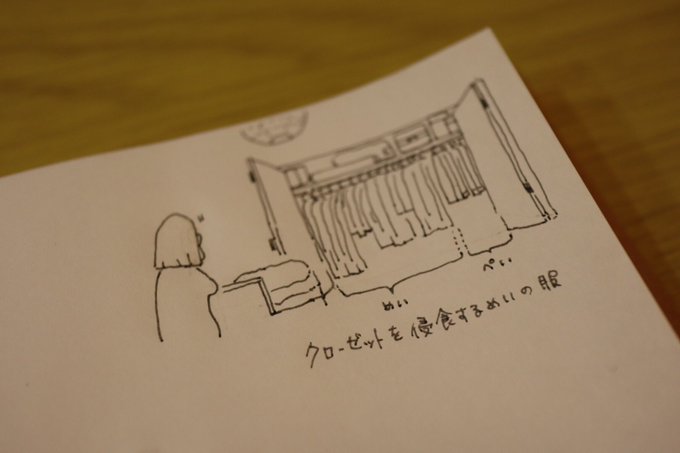 ぺい
めい
クローゼットを侵食するめいの服